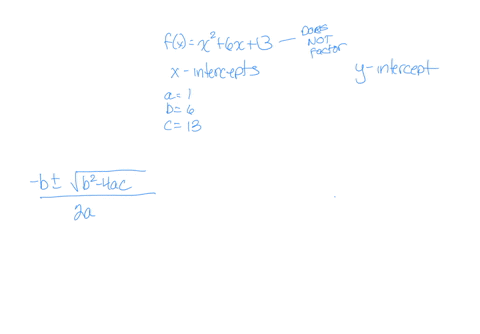 f(x) = x²+6x+13 — Does
NOT
factor
x-intercepts
y-intercept
a=1
b=6
c=13
-b ± √b²-4ac
2a